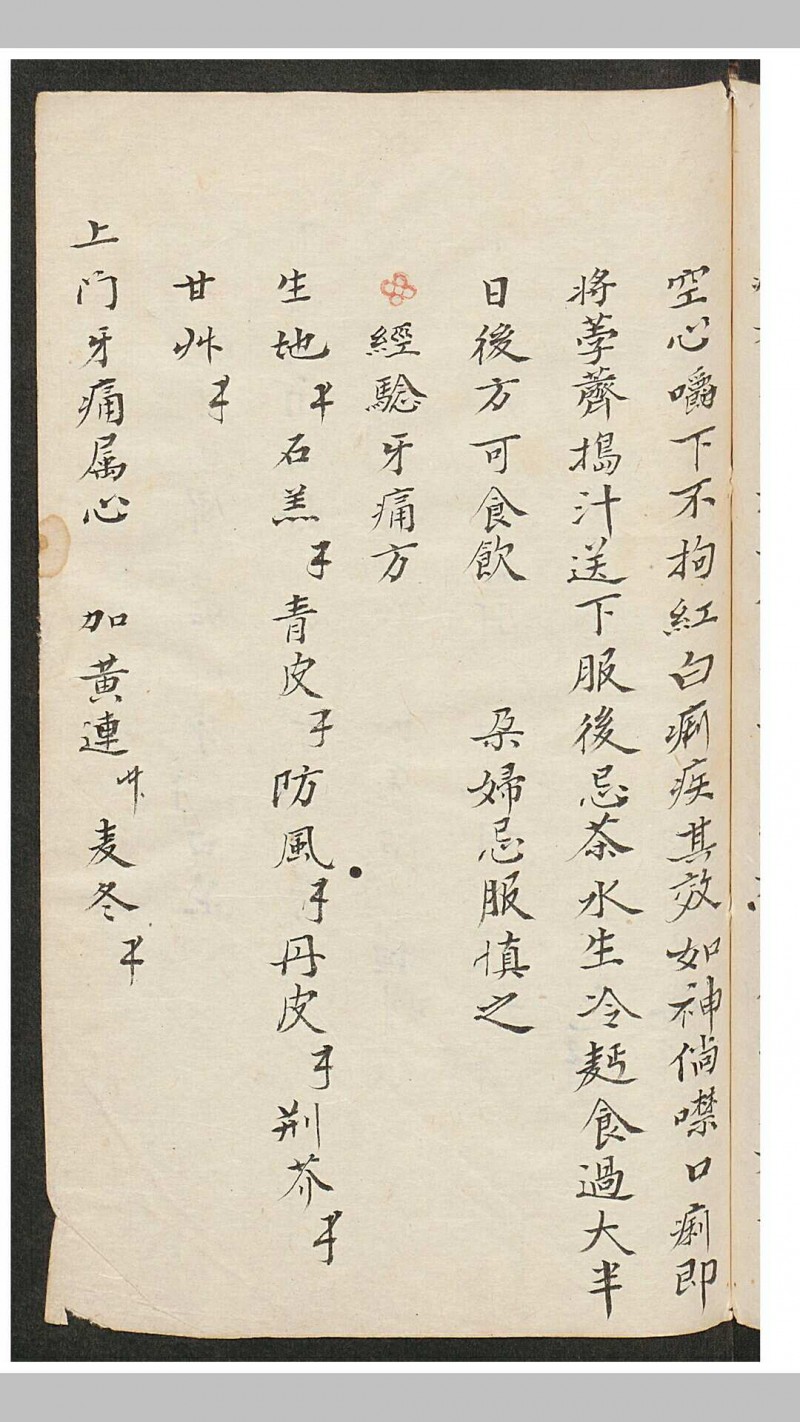 空心嚼下不拘紅白痢疾其效如神倘噤口痢即
將葧薺搗汁送下服後忌茶水生冷麪食過大半
日後方可食飲 孕婦忌服慎之
經騐牙痛方
生地 石羔 青皮 防風 丹皮 荆芥
甘艸
上门牙痛属心 加黃連 麦冬